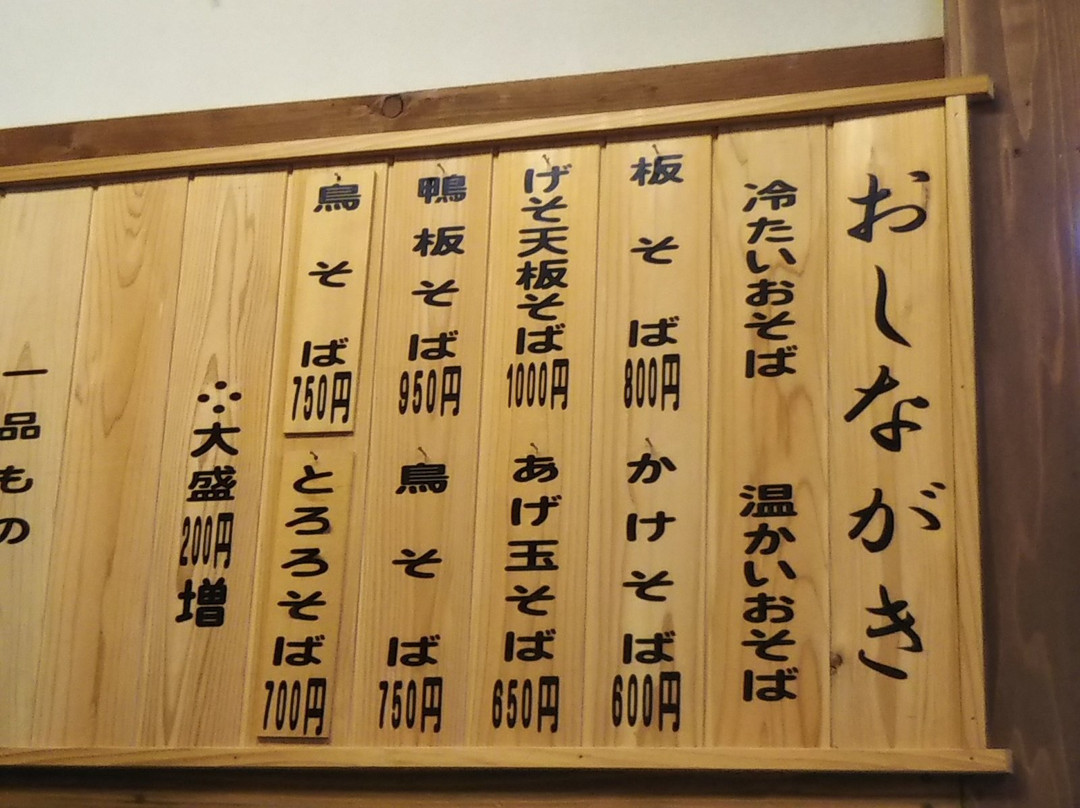 おしながき
冷たいおそば
温かいおそば
板そば800円
かけそば600円
げそ天板そば1000円
あげ玉そば650円
鴨板そば950円
鳥そば750円
鳥そば750円
とろろそば700円
大盛200円増
一品もの